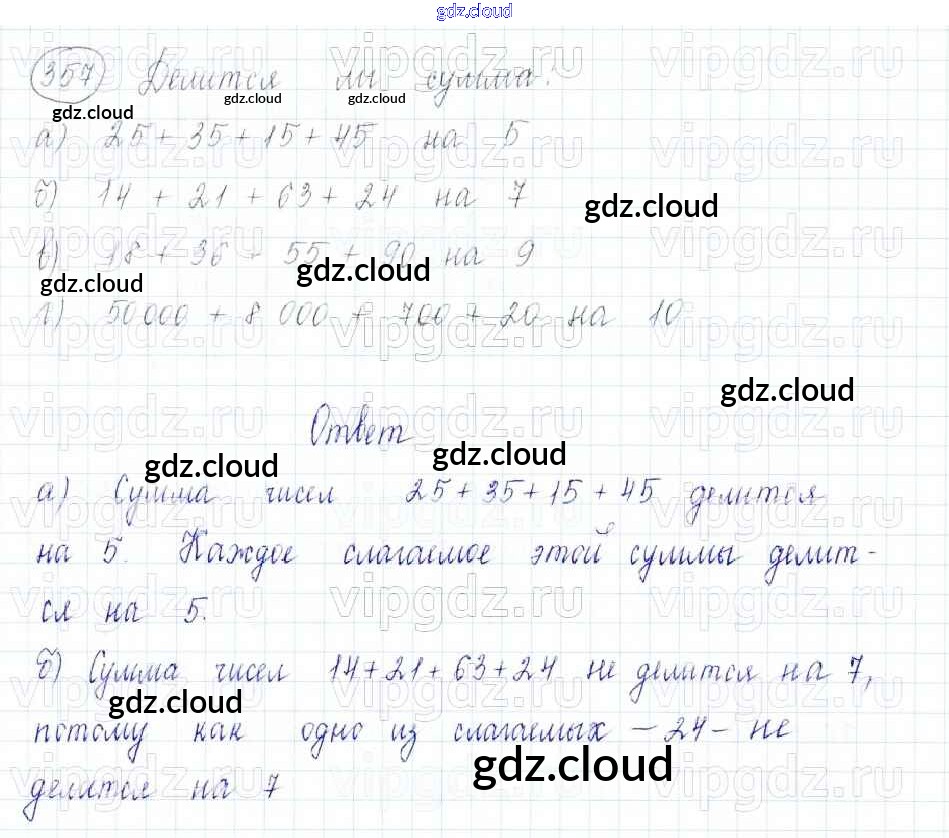 gdz.cloud
357 Делится ли сумма:
gdz.cloud gdz.cloud gdz.cloud
а) 25 + 35 + 15 + 45 на 5
б) 14 + 21 + 63 + 24 на 7
gdz.cloud
в) 18 + 36 + 55 + 90 на 9
gdz.cloud gdz.cloud
г) 50 000 + 8 000 + 700 + 20 на 10
gdz.cloud
Ответ
gdz.cloud gdz.cloud
а) Сумма чисел 25 + 35 + 15 + 45 делится
на 5. Каждое слагаемое этой суммы делит-
ся на 5.
б) Сумма чисел 14 + 21 + 63 + 24 не делится на 7,
gdz.cloud
потому как одно из слагаемых — 24 — не
gdz.cloud
делится на 7
vipgdz.ru